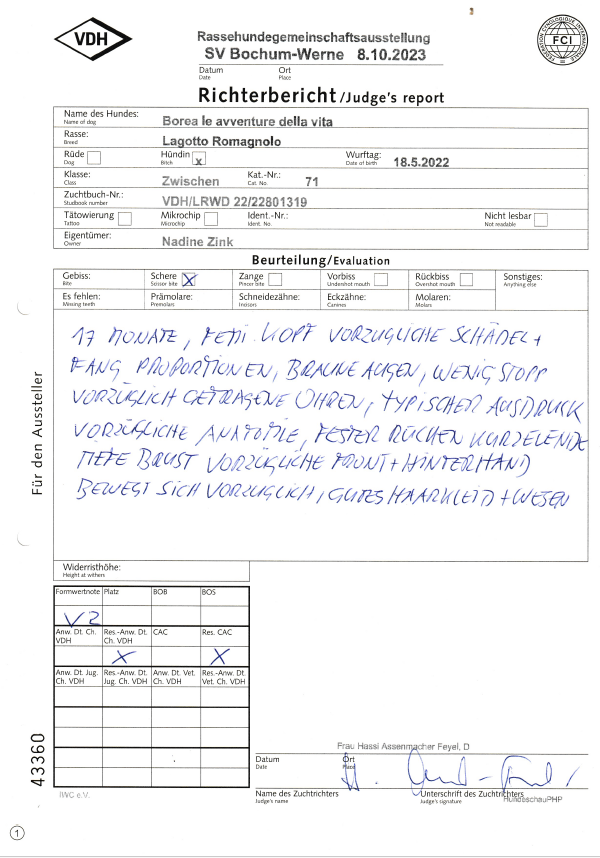 VDH
Rassehundegemeinschaftsausstellung
SV Bochum-Werne 8.10.2023
Datum Ort
Date Place
FEDERATION CYNOLOGIQUE INTERNATIONALE
FCI
Richterbericht /Judge's report
Name des Hundes: Borea le avventure della vita
Name of dog
Rasse: Lagotto Romagnolo
Breed
Rüde Hündin x Wurftag: 18.5.2022
Dog Bitch Date of birth
Klasse: Zwischen Kat.-Nr.: 71
Class Cat. No.
Zuchtbuch-Nr.: VDH/LRWD 22/22801319
Studbook number
Tätowierung Mikrochip Ident.-Nr.: Nicht lesbar
Tattoo Microchip Ident. No. Not readable
Eigentümer: Nadine Zink
Owner
Beurteilung/Evaluation
Gebiss: Schere X Zange Vorbiss Rückbiss Sonstiges:
Bite Scissor bite Pincer bite Undershot mouth Overshot mouth Anything else
Es fehlen: Prämolare: Schneidezähne: Eckzähne: Molaren:
Missing teeth Premolars Incisors Canines Molars
17 MONATE, FEMI. KOPF VORZÜGLICHE SCHÄDEL +
FANG PROPORTIONEN, BRAUNE AUGEN, WENIG STOPP
VORZÜGLICH GETRAGENE OHREN, TYPISCHER AUSDRUCK
VORZÜGLICHE ANATOMIE, FESTER RÜCKEN KURZE LENDE
TIEFE BRUST VORZÜGLICHE FRONT + HINTERHAND
BEWEGT SICH VORZÜGLICH, GUTES HAARKLEID + WESEN
Für den Aussteller
Widerristhöhe:
Height at withers
Formwertnote Platz BOB BOS
V2
Anw. Dt. Ch. VDH Res.-Anw. Dt. Ch. VDH CAC Res. CAC
X X
Anw. Dt. Jug. Ch. VDH Res.-Anw. Dt. Jug. Ch. VDH Anw. Dt. Vet. Ch. VDH Res.-Anw. Dt. Vet. Ch. VDH
43360
IWC e.V.
Frau Hassi Assenmacher Feyel, D
Datum Ort
Date Place
Name des Zuchtrichters Unterschrift des Zuchtrichters
Judge's name Judge's signature
HundeschauPHP
1